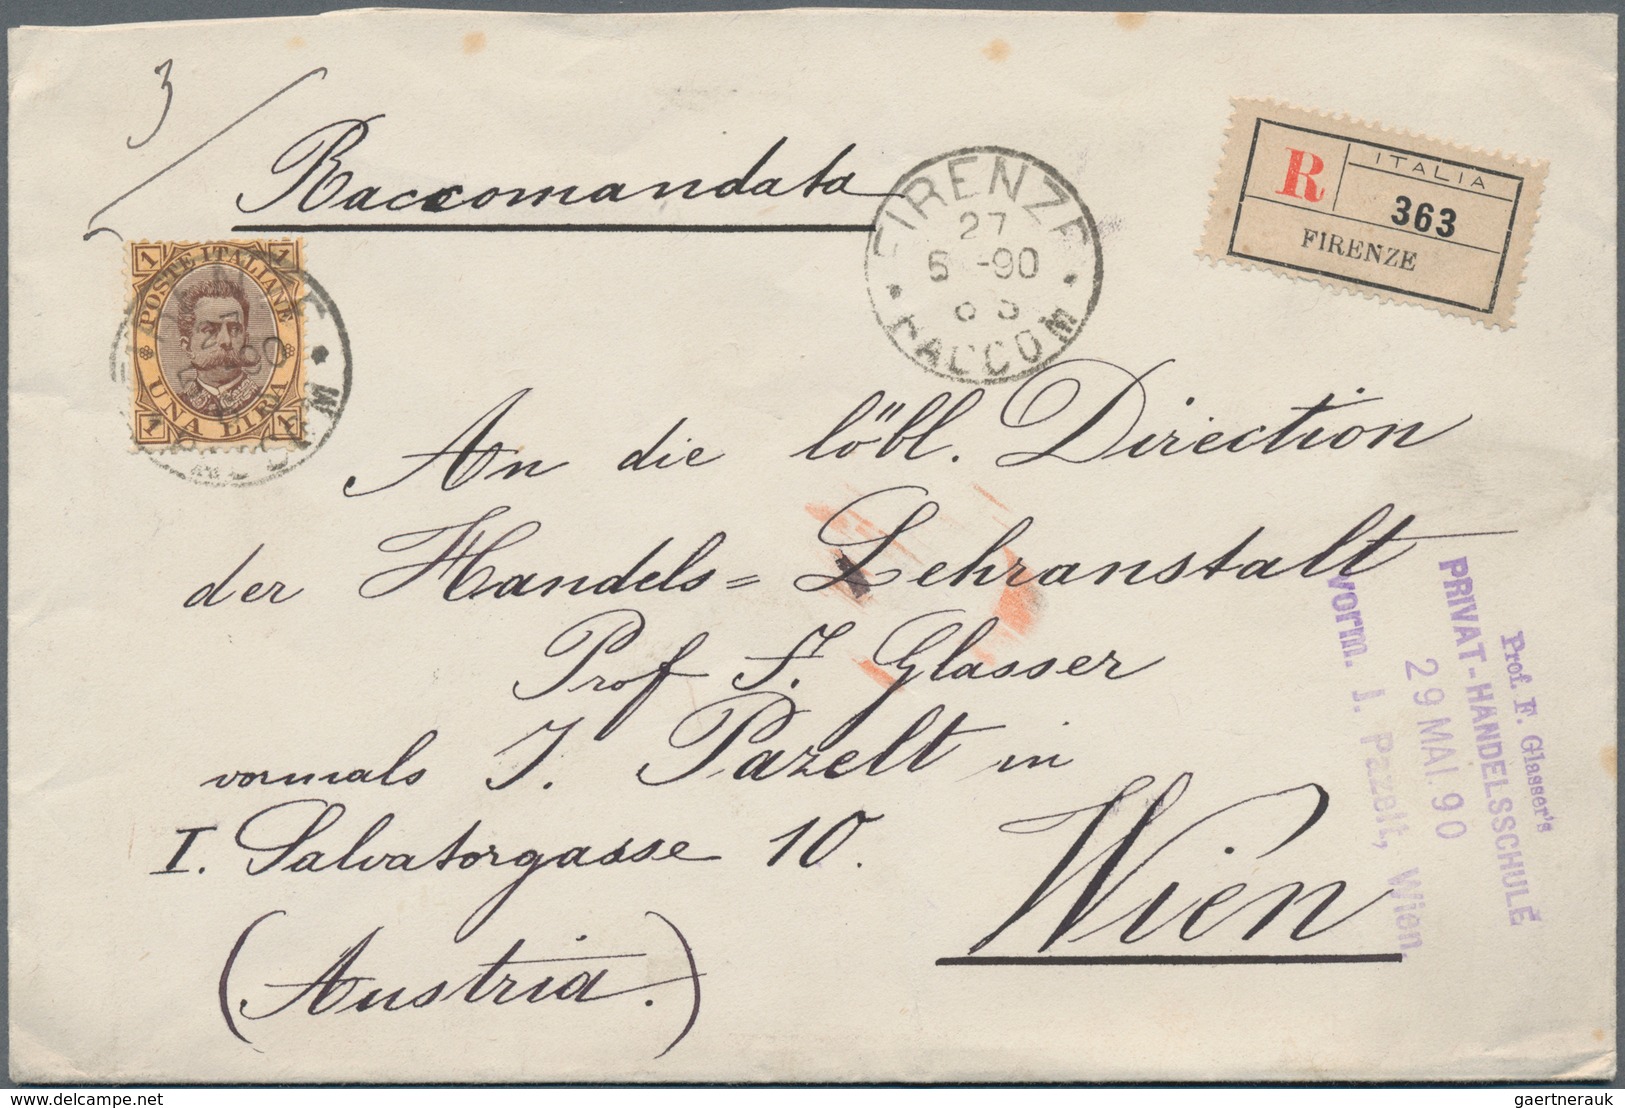 3
Raccomandata
FIRENZE
27
5 -90
8 S
RACCOM
R
ITALIA
363
FIRENZE
1 1
POSTE ITALIANE
UNA LIRA
1 1
An die löbl. Direction
der Handels= Lehranstalt
Prof F. Glasser
vormals J. Pazelt in
I. Salvatorgasse 10.
Wien
(Austria.)
Prof. F. Glasser's
PRIVAT-HANDELSSCHULE
29 MAI. 90
vorm. J. Pazelt, Wien.
delcampe.net
gaertnerauk